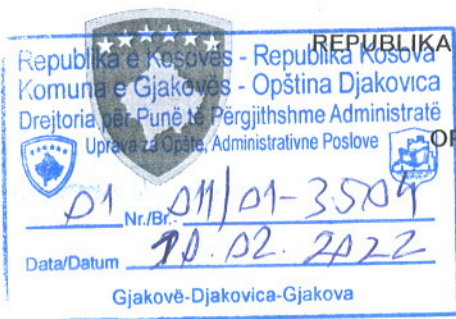 REPUBLIKA
Republika e Kosovës - Republika Kosova
Komuna e Gjakovës - Opština Djakovica
Drejtoria për Punë të Përgjithshme Administratë
Uprava za Opšte, Administrativne Poslove
OP
01 Nr./Br.: 011/01-3504
Data/Datum 10.02.2022
Gjakovë-Djakovica-Gjakova